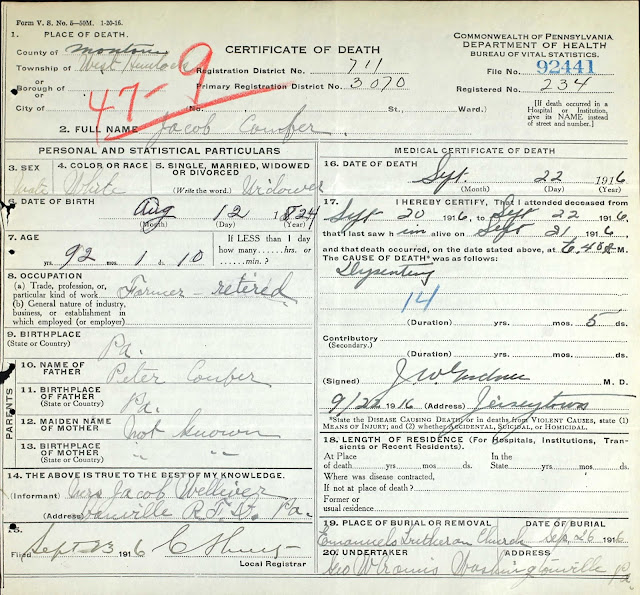 Form V. S. No. 5—50M. 1-20-16.
1. PLACE OF DEATH.
County of Montour
Township of West Hemlock
or
Borough of
or
City of
47-9
CERTIFICATE OF DEATH
Registration District No. 711
Primary Registration District No. 3070
No. St., Ward.)
COMMONWEALTH OF PENNSYLVANIA
DEPARTMENT OF HEALTH
BUREAU OF VITAL STATISTICS.
File No. 92441
Registered No. 234
[If death occurred in a
Hospital or Institution,
give its NAME instead
of street and number.]
2. FULL NAME Jacob
PERSONAL AND STATISTICAL PARTICULARS
3. SEX
Male
4. COLOR OR RACE
White
5. SINGLE, MARRIED, WIDOWED
OR DIVORCED
(Write the word.) Widower
6. DATE OF BIRTH
Aug 12 1824
(Month) (Day) (Year)
7. AGE
92 yrs. 1 mos. 10 ds.
If LESS than 1 day
how many......hrs. or
......min.?
8. OCCUPATION
(a) Trade, profession, or
particular kind of work Farmer - retired
(b) General nature of industry,
business, or establishment in
which employed (or employer)
9. BIRTHPLACE
(State or Country) Pa.
PARENTS
10. NAME OF
FATHER Peter
11. BIRTHPLACE
OF FATHER
(State or Country) Pa.
12. MAIDEN NAME
OF MOTHER not known
13. BIRTHPLACE
OF MOTHER
(State or Country) " "
14. THE ABOVE IS TRUE TO THE BEST OF MY KNOWLEDGE.
(Informant) Mrs Jacob Welliver
(Address) Danville R.F.D. Pa.
15.
Filed Sept 23 1916
Local Registrar
MEDICAL CERTIFICATE OF DEATH
16. DATE OF DEATH
Sept. 22 1916
(Month) (Day) (Year)
17. I HEREBY CERTIFY, That I attended deceased from
Sept 20 1916, to Sept 22 1916,
that I last saw him alive on Sept 21 1916,
and that death occurred, on the date stated above, at M.
The CAUSE OF DEATH* was as follows:
Dysentery
14
(Duration) yrs. mos. 5 ds.
Contributory
(Secondary.)
(Duration) yrs. mos. ds.
(Signed) M. D.
1916 (Address) Jerseytown
*State the DISEASE CAUSING DEATH, or in deaths from VIOLENT CAUSES, state (1)
MEANS OF INJURY; and (2) whether ACCIDENTAL, SUICIDAL, or HOMICIDAL.
18. LENGTH OF RESIDENCE (For Hospitals, Institutions, Transients or Recent Residents).
At Place
of death yrs. mos. ds.
In the
State yrs. mos. ds.
Where was disease contracted,
if not at place of death?
Former or
usual residence
19. PLACE OF BURIAL OR REMOVAL
Emanuels Lutheran Church
DATE OF BURIAL
Sep. 26 1916
20. UNDERTAKER
Geo W
ADDRESS
Washingtonville Pa